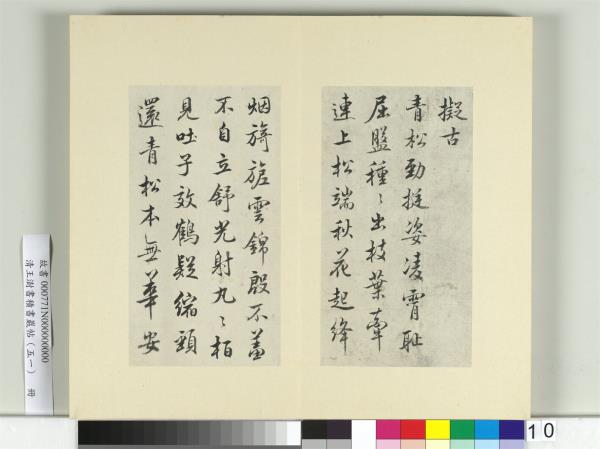 擬古
青松勁挺姿凌霄耻
屈盤種〻出枝葉牽
連上松端秋花起絳
烟旖旎雲錦殷不羞
不自立舒光射丸〻柏
見吐子效鶴疑縮頸
還青松本無華安
故書 000771N000000000
清王澍書積書巖帖（五一） 冊
10